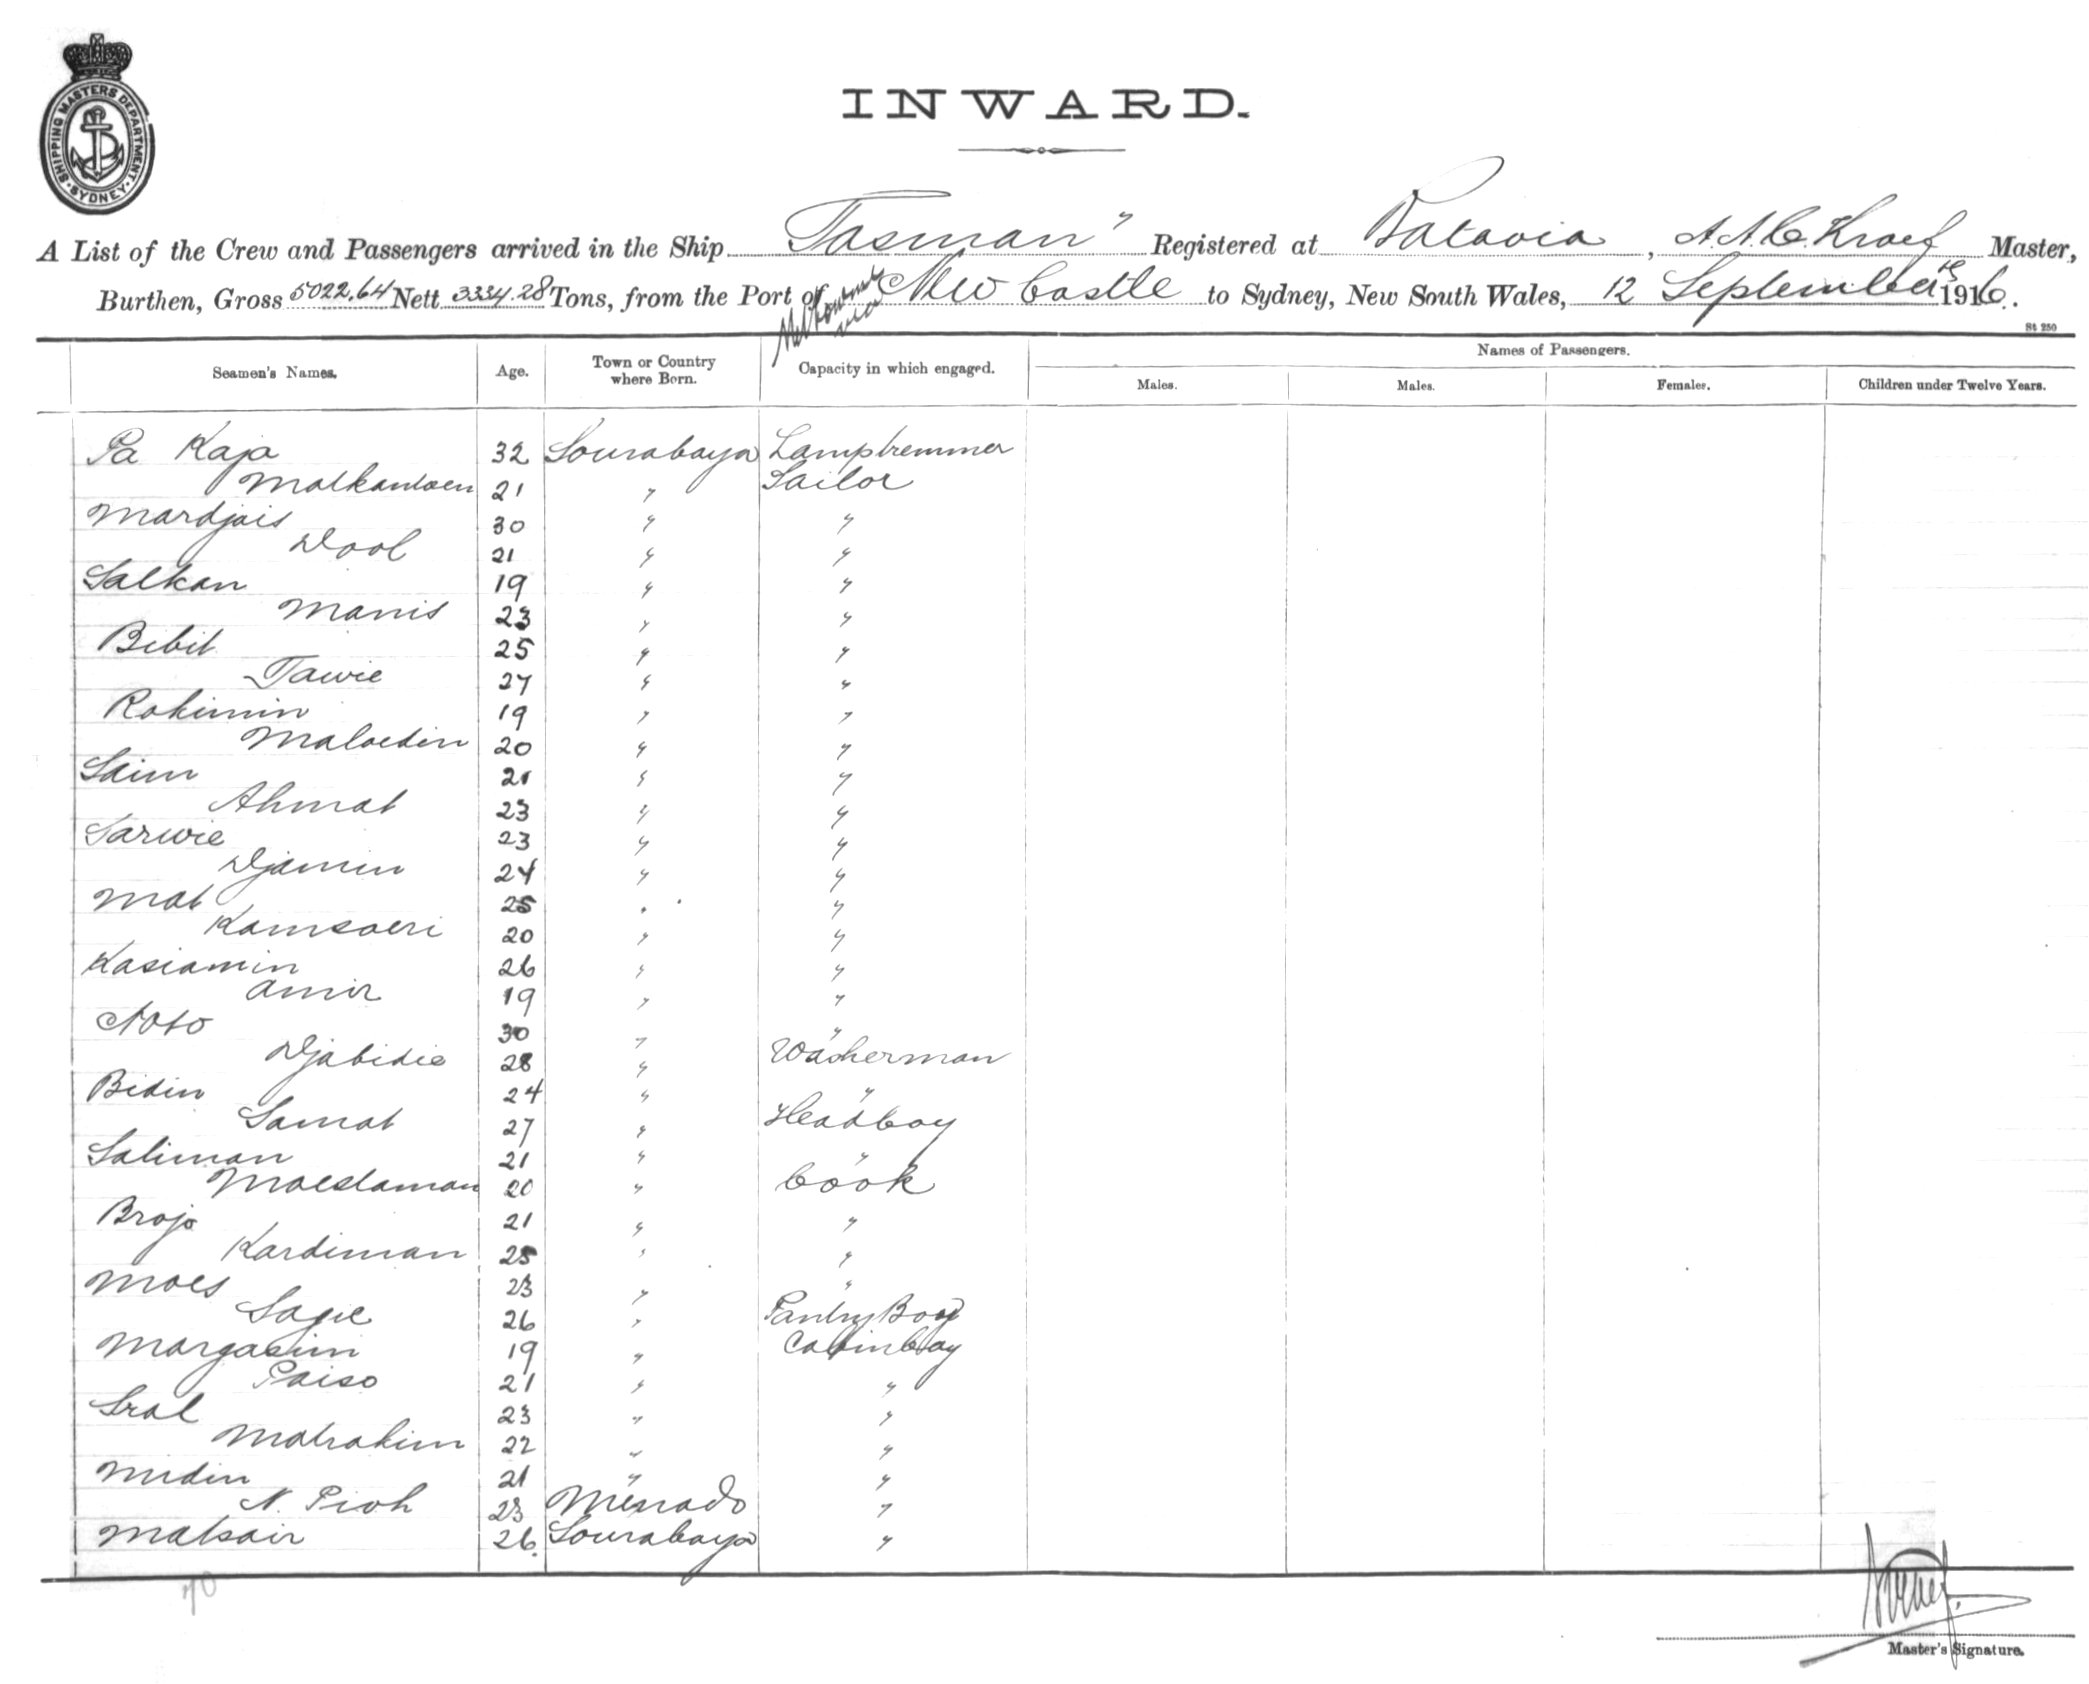 SHIPPING MASTERS DEPARTMENT. SYDNEY.
INWARD.
A List of the Crew and Passengers arrived in the Ship "Tasman" Registered at Batavia, A.A.C. Kroef Master,
Burthen, Gross 5022.64 Nett 3334.28 Tons, from the Port of Melbourne via New Castle to Sydney, New South Wales, 12 September 1916.
St 250
Seamen's Names. Age. Town or Country where Born. Capacity in which engaged. Names of Passengers.
Males. Males. Females. Children under Twelve Years.
Pa Kaja 32 Sourabaya Lamptremmer
Matkantoen 21 " Sailor
Mardjais 30 " "
Dool 21 " "
Salkan 19 " "
Manis 23 " "
Bibit 25 " "
Tawie 27 " "
Rokimin 19 " "
Maloedin 20 " "
Saim 21 " "
Ahmat 23 " "
Sarwie 23 " "
Djamin 24 " "
Mat 25 " "
Kamsoeri 20 " "
Kasiamin 26 " "
Amir 19 " "
Noto 30 " "
Djabidie 28 " Washerman
Bidin 24 " "
Samat 27 " Headboy
Saliman 21 " "
Moestaman 20 " Cook
Brojo 21 " "
Kardiman 25 " "
Moes 23 " "
Sagie 26 " Pantry Boy
Margasim 19 " Cabinboy
Paiso 21 " "
Sral 23 " "
Matrakim 22 " "
Midin 21 " "
N. Pioh 23 Menado "
Matsair 26. Sourabaya "
40
Master's Signature.